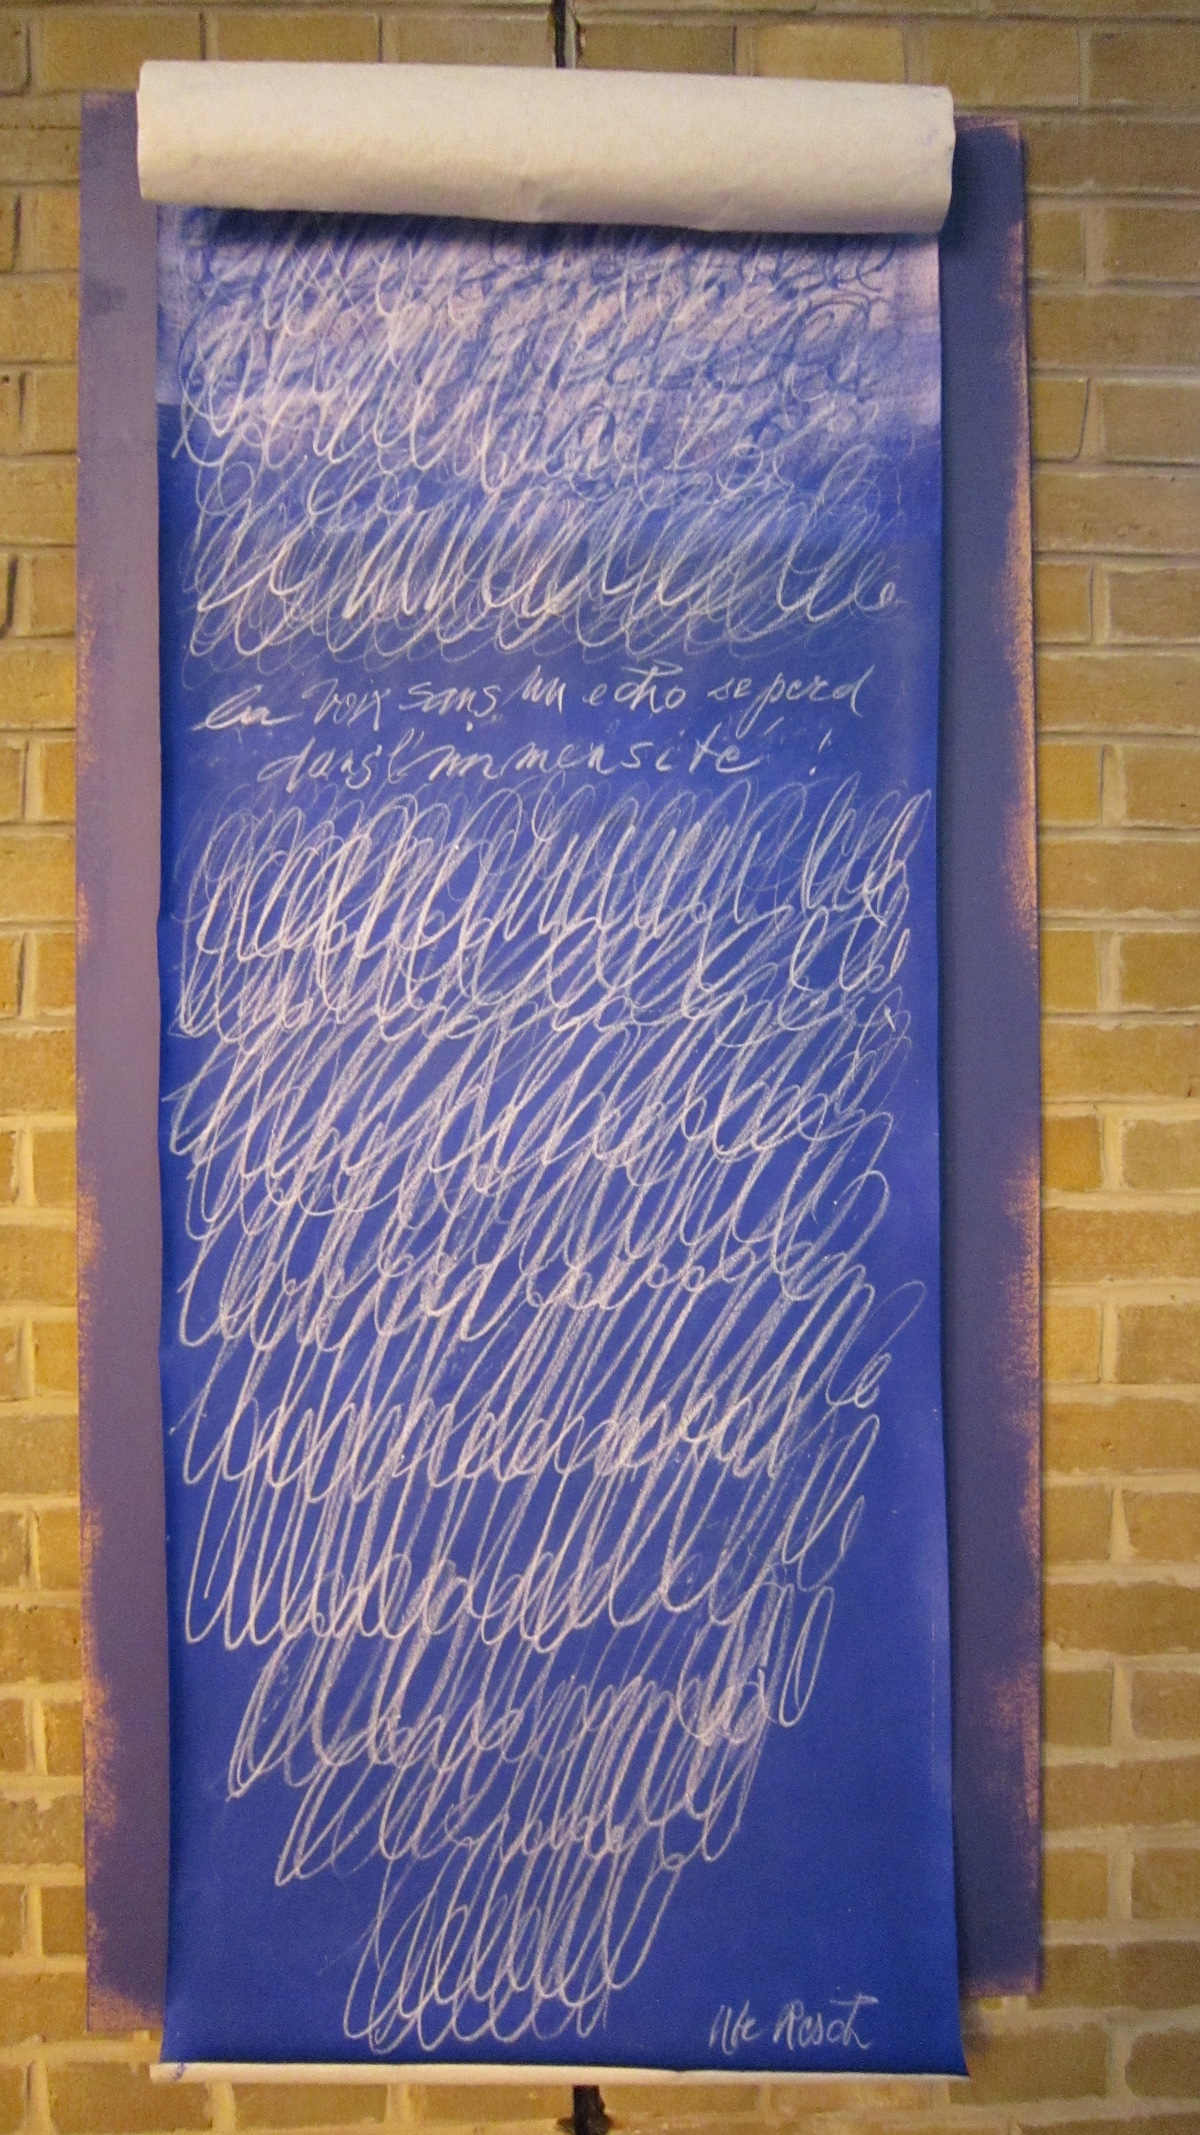 la voix sans un echo se perd
dans l'immensité !
Ute Resch